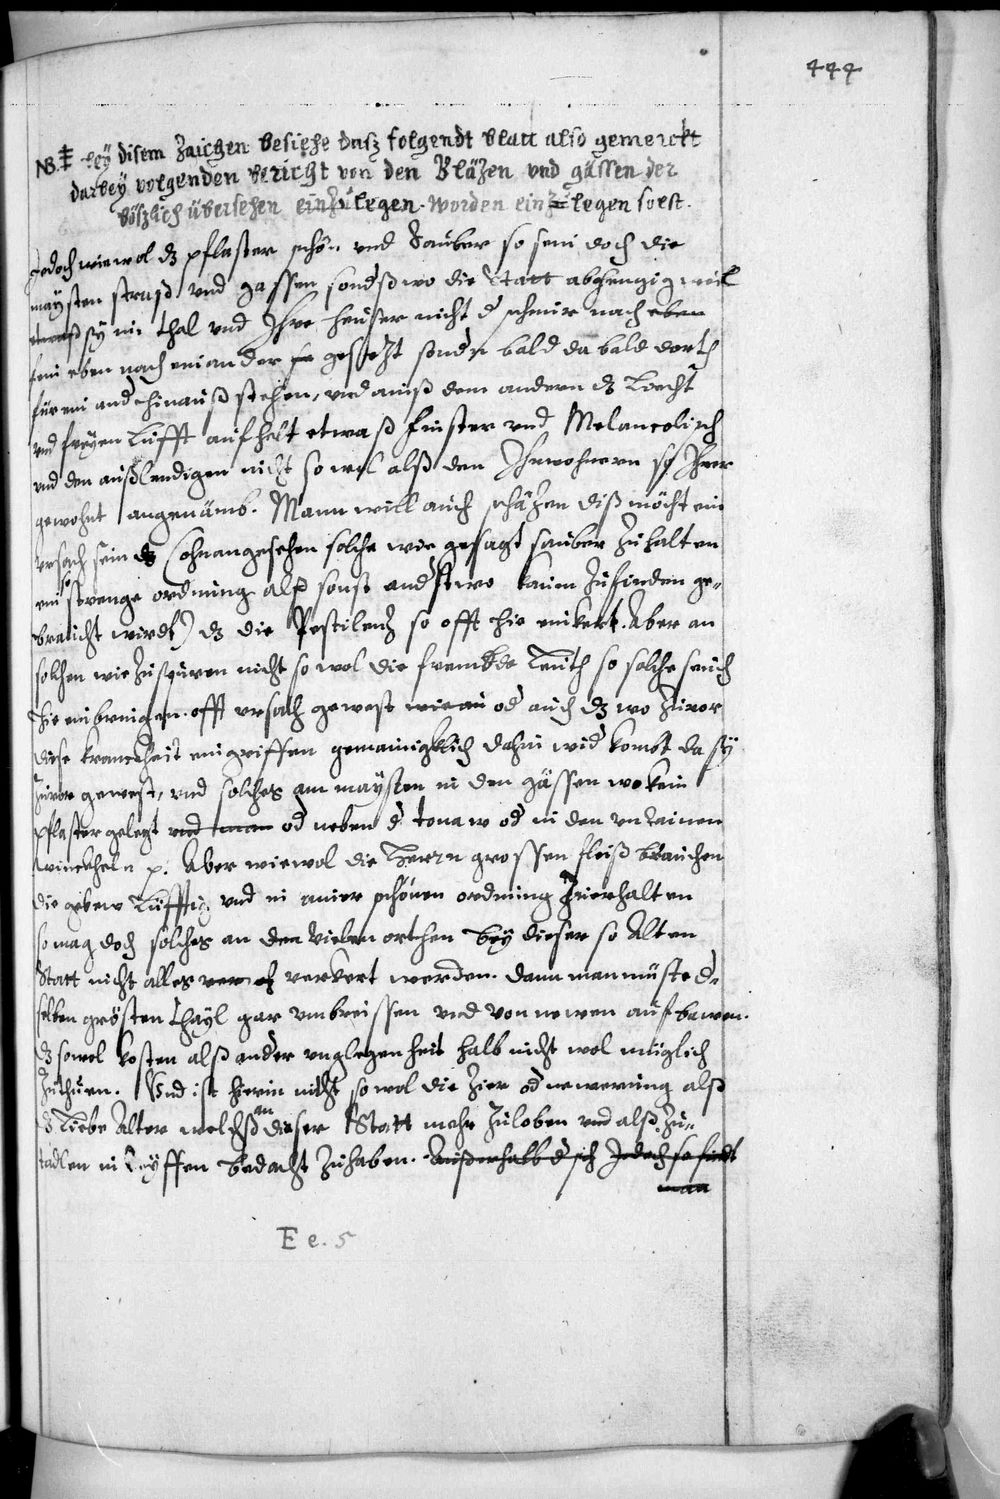 444
NB.‡ bey disem Zaichen besiehe dasz folgendt blatt also gemerckt
darbey volgenden bericht von den Bläzen vnd gässen der
böszlich übersehen einzulegen worden einzulegen soest.
Jedoch wiewol dz pflaster schön vnd sauber so sein doch die
maysten straß vnd gassen sondß wo die Statt abhengig weil
sy im thal vnd Ihre heuser nicht d schnuir nach eben
sein eben nach einander gesetzt sondn bald da bald dorth
für ein and hinauß stehen, vnd auß dem andern dz Liecht
vnd freyen Lufft aufhelt etwaß finster vnd Melancolisch
vnd den außlendigen nicht so wol alß den Inwohnern so Ihrer
gewohnt angenämb. Mann will auch schäzen diß möcht ein
vrsach sein dz (ohnangesehen solche wie gesagt sauber zuhalten
ein so strenge ordnung alß sonst andstwo kaum zufinden ge-
braucht wirdt) dz die Pestilentz so offt hie einkert. Aber an
solchen wie zuspüren nicht so wol die frembde Leuth so solche seuch
hie einbringen offt vrsach gewest od auch dz wo zuvor
diese kranckheit eingriffen gemainigklich dahin wid kombt da sy
zuvor gewest, vnd solches am maysten in den gässen wo kein
pflaster gelegt vnd man od neben d tonaw od in den vnrainen
winckheln p. Aber wiewol die Herrn grossen fleiß brauchen
die gebew Lüfftig vnd in ainer schönen ordnung zuerhalten
so mag doch solches an den vielen orthen bey dieser so Alten
Statt nicht alles verkert werden. dann man müste d-
selben grösten thayl gar vmbreissen vnd von newen aufbawen.
dz sowol kosten alß ander vnglegenheit halb nicht wol müglich
zuthuen. Vnd ist hierin nicht so wol die zier od newerung alß
d Liebe Alter welchß an dieser Statt mehr zuloben vnd alß zu-
tadlen in bedacht zuhaben. Außerhalb d sich Jedoch so findt
man
E e. 5